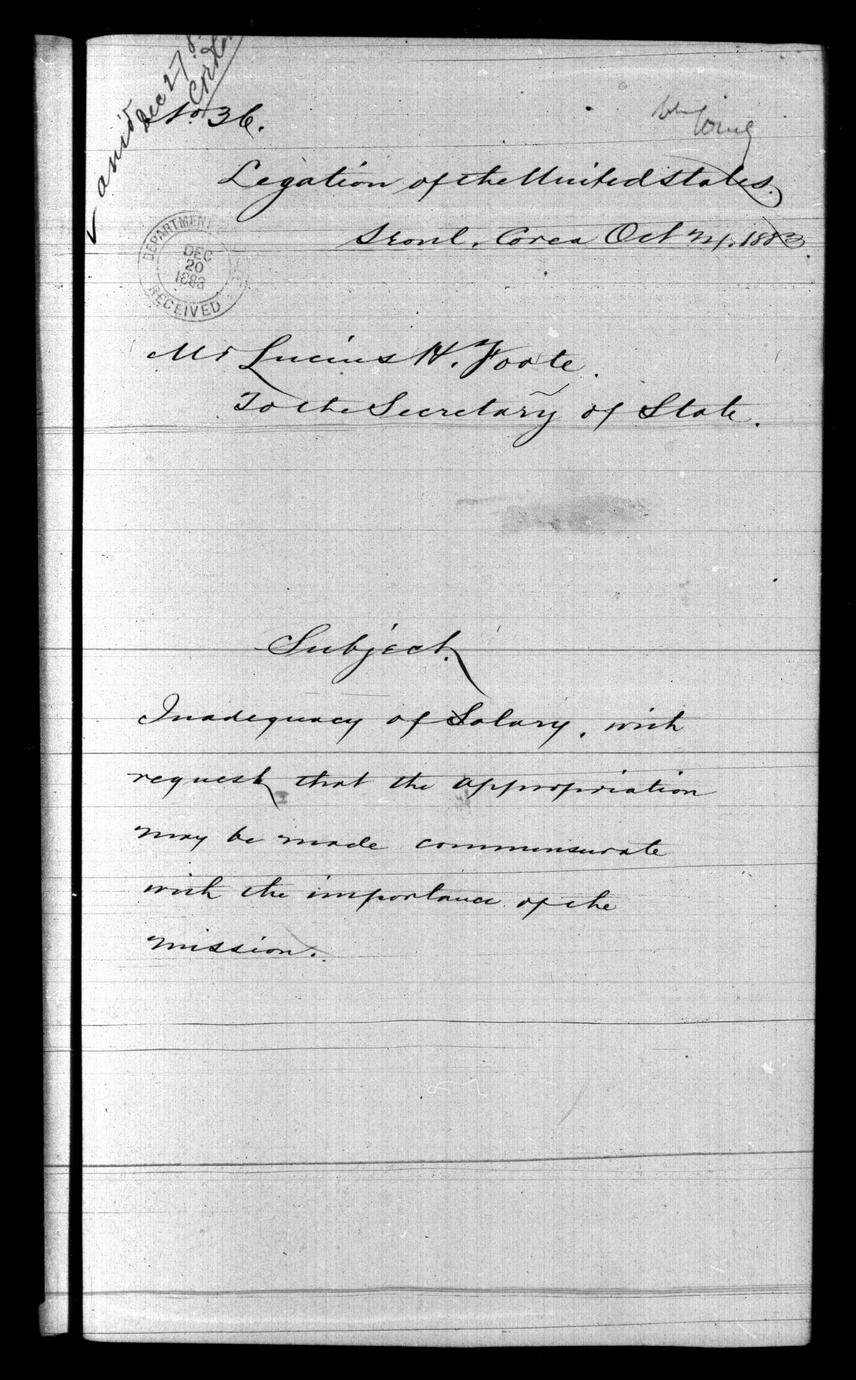 ans'd
Dec 27
No 36.
Legation of the United States.
Seoul, Corea Oct 1883
DEPARTMENT
DEC
20
1883
RECEIVED
Mr Lucius H. Foote.
To the Secretary of State.
Subject.
Inadequacy of Salary, with
request that the appropriation
may be made commensurate
with the importance of the
mission.